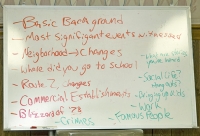 - Basic Background
- Most signifigant events witnessed
- Neighborhood → Changes
- Where did you go to school
- Route 7, Changes
- Commercial Establishments
- Blizzard of 78
- Crimes
- Social life?
- Work
- Famous People